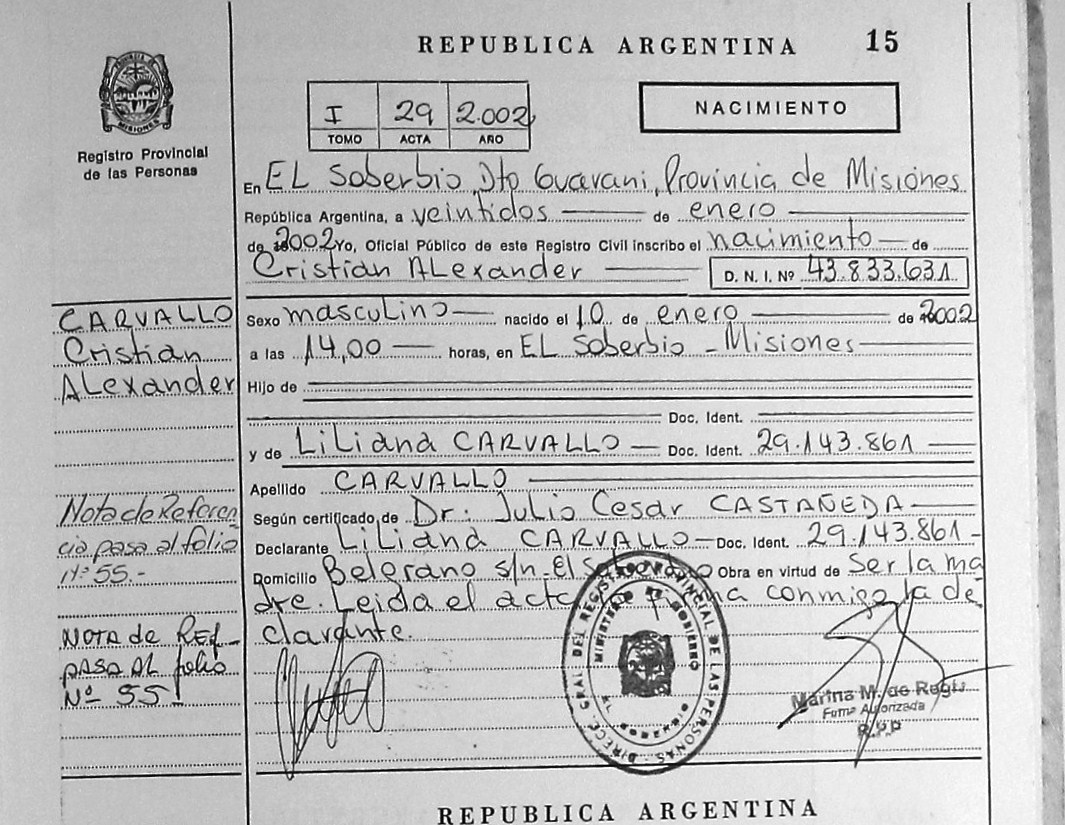 REPUBLICA ARGENTINA 15
PROVINCIA DE MISIONES
Registro Provincial
de las Personas
I 29 2.002
TOMO ACTA AÑO
NACIMIENTO
En EL Soberbio, Dto Guarani, Provincia de Misiones
República Argentina, a veintidos de enero
de 2002 Yo, Oficial Público de este Registro Civil inscribo el nacimiento de
Cristian ALexander D. N. I. Nº 43.833.631
CARVALLO
Cristian
ALexander
Sexo masculino nacido el 10 de enero de 2002
a las 14,00 horas, en EL Soberbio - Misiones
Hijo de
Doc. Ident.
y de LiLiana CARVALLO Doc. Ident. 29.143.861
Apellido CARVALLO
Según certificado de Dr. Julio Cesar CASTAÑEDA
Declarante LiLiana CARVALLO - Doc. Ident. 29.143.861 -
Domicilio Belgrano s/n. El Obra en virtud de Ser la ma
dre. Leida el acta conmigo la de
clarante.
Nota de Referen
cia pasa al folio
Nº 55.-
NOTA de Ref.
pasa AL folio
Nº 55
DIRECC. GRAL. DEL REGISTRO PROVINCIAL DE LAS PERSONAS
MINISTERIO DE GOBIERNO
Marina M. de Regis
Firma Autorizada
R.P.P
REPUBLICA ARGENTINA